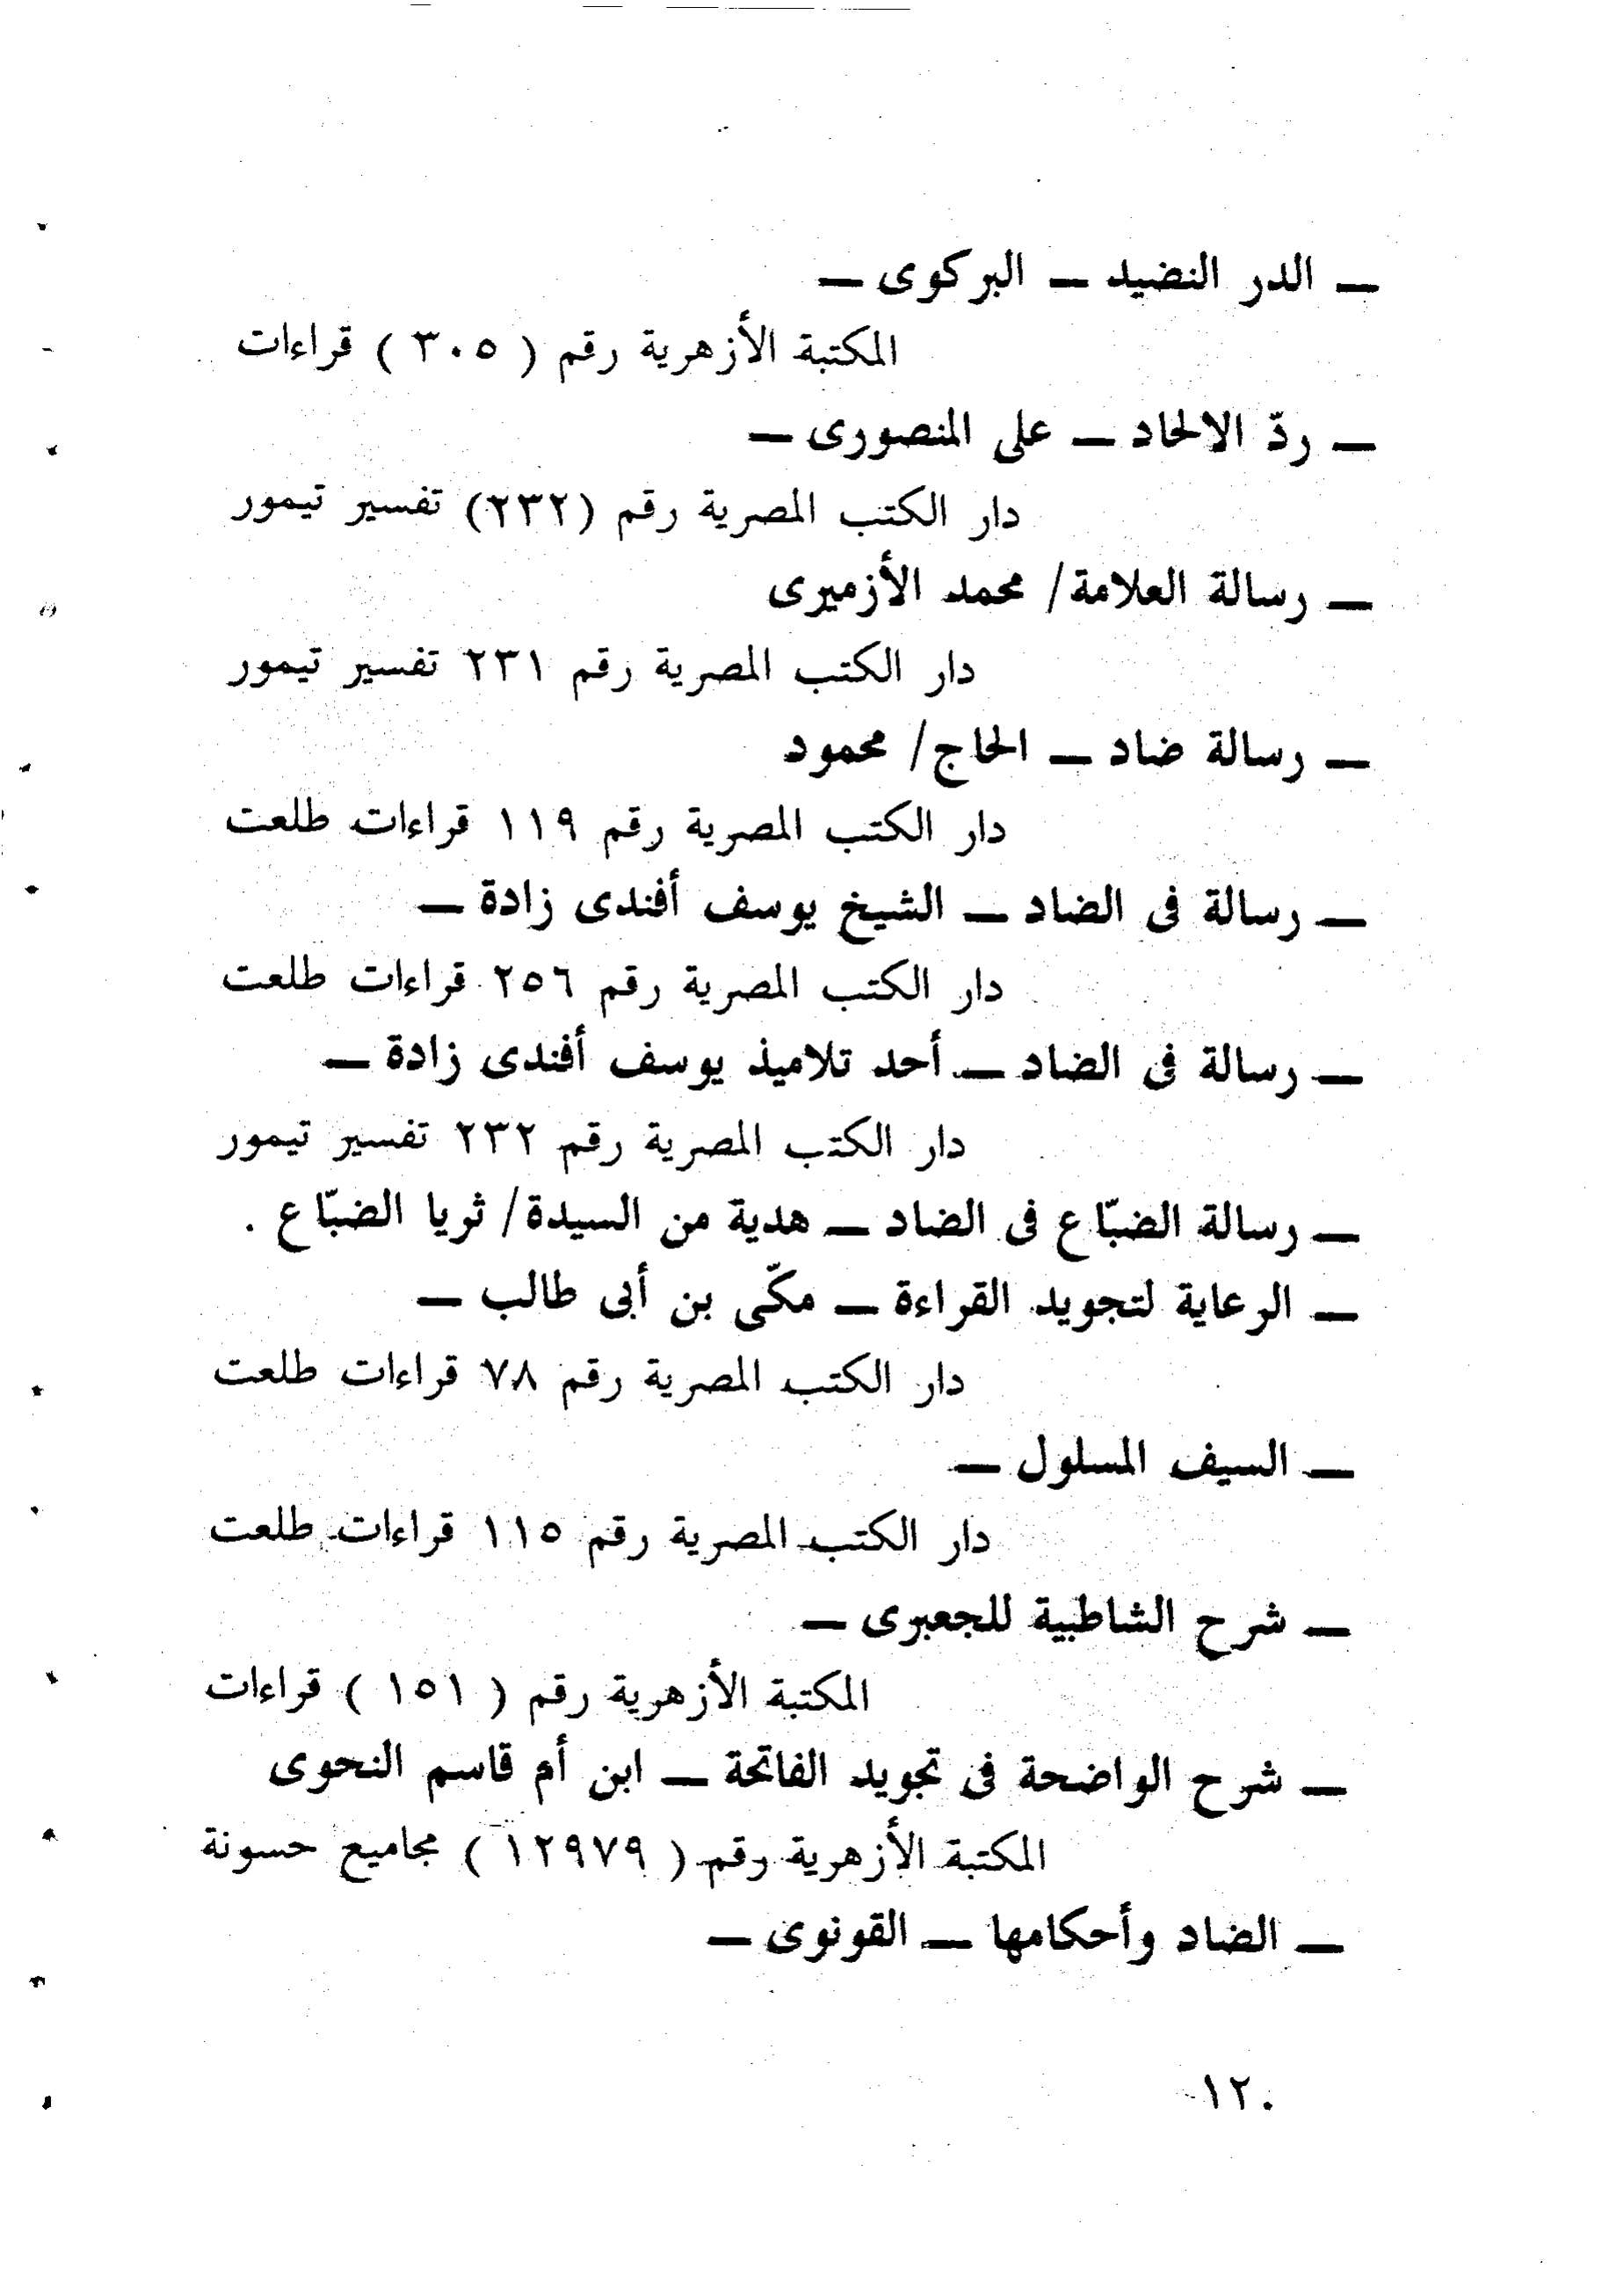 ــ الدر النضيد ــ البركوى ــ
المكتبة الأزهرية رقم ( ٣٠٥ ) قراءات
ــ ردّ الالحاد ــ على المنصورى ــ
دار الكتب المصرية رقم (٢٣٢) تفسير تيمور
ــ رسالة العلامة/ محمد الأزميرى
دار الكتب المصرية رقم ٢٣١ تفسير تيمور
ــ رسالة ضاد ــ الحاج/ محمود
دار الكتب المصرية رقم ١١٩ قراءات طلعت
ــ رسالة فى الضاد ــ الشيخ يوسف أفندى زادة ــ
دار الكتب المصرية رقم ٢٥٦ قراءات طلعت
ــ رسالة فى الضاد ــ أحد تلاميذ يوسف أفندى زادة ــ
دار الكتب المصرية رقم ٢٣٢ تفسير تيمور
ــ رسالة الضبّاع فى الضاد ــ هدية من السيدة/ ثريا الضبّاع .
ــ الرعاية لتجويد القراءة ــ مكّى بن أبى طالب ــ
دار الكتب المصرية رقم ٧٨ قراءات طلعت
ــ السيف المسلول ــ
دار الكتب المصرية رقم ١١٥ قراءات طلعت
ــ شرح الشاطبية للجعبرى ــ
المكتبة الأزهرية رقم ( ١٥١ ) قراءات
ــ شرح الواضحة فى تجويد الفاتحة ــ ابن أم قاسم النحوى
المكتبة الأزهرية رقم ( ١٢٩٧٩ ) مجاميع حسونة
ــ الضاد وأحكامها ــ القونوى ــ
١٢٠